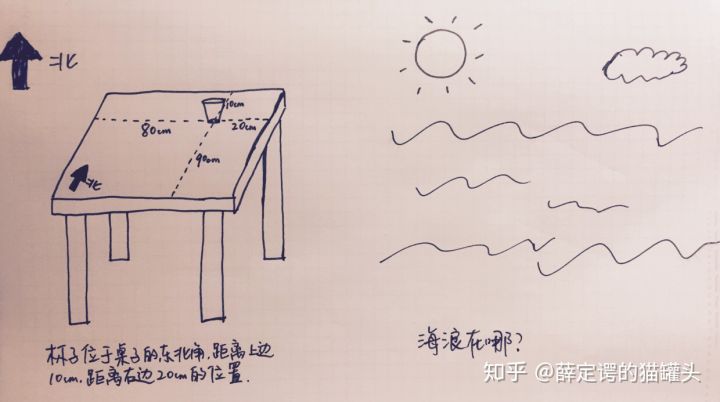 北
10cm
80cm
20cm
90cm
北
杯子位于桌子的东北角,距离上边
10cm,距离右边20cm的位置.
海浪在哪?
知乎 @薛定谔的猫罐头